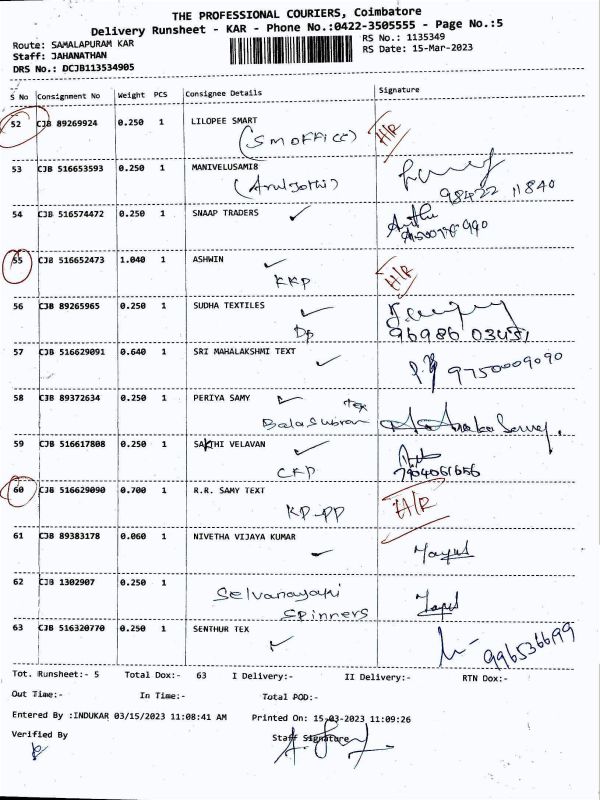 THE PROFESSIONAL COURIERS, Coimbatore
Delivery Runsheet - KAR - Phone No.:0422-3505555 - Page No.:5
Route: SAMALAPURAM KAR
RS No.: 1135349
Staff: JAHANATHAN
RS Date: 15-Mar-2023
DRS No.: DCJB113534905
S No Consignment No Weight PCS Consignee Details Signature
52 CJB 89269924 0.250 1 LILOPEE SMART H/R
(SM OFFICE)
53 CJB 516653593 0.250 1 MANIVELUSAMI8
(Aruljothi) 98422 11840
54 CJB 516574472 0.250 1 SNAAP TRADERS
55 CJB 516652473 1.040 1 ASHWIN H/R
KKP
56 CJB 89265965 0.250 1 SUDHA TEXTILES
DP 96986 03451
57 CJB 516629091 0.640 1 SRI MAHALAKSHMI TEXT 9750009090
58 CJB 89372634 0.250 1 PERIYA SAMY
Tex
Balasubran
59 CJB 516617808 0.250 1 SAKTHI VELAVAN
CKP 7904061656
60 CJB 516629090 0.700 1 R.R. SAMY TEXT H/R
KP-PP
61 CJB 89383178 0.060 1 NIVETHA VIJAYA KUMAR
62 CJB 1302907 0.250 1 Selvanayaki
Spinners
63 CJB 516320770 0.250 1 SENTHUR TEX 996536699
Tot. Runsheet:- 5 Total Dox:- 63 I Delivery:- II Delivery:- RTN Dox:-
Out Time:- In Time:- Total POD:-
Entered By :INDUKAR 03/15/2023 11:08:41 AM Printed On: 15-03-2023 11:09:26
Verified By Staff Signature